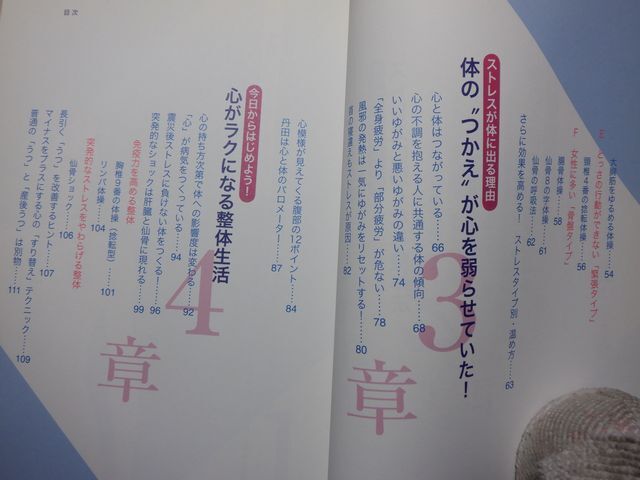 大腰筋をゆるめる体操……54
E とっさの行動ができない「緊張タイプ」
頸椎4番の捻転体操……56
F 女性に多い「骨盤タイプ」
腸骨体操……58
仙骨8の字体操……61
仙骨の呼吸法……62
さらに効果を高める! ストレスタイプ別・温め方……63
3章
ストレスが体に出る理由
体の〝つかえ〟が心を弱らせていた!
心と体はつながっている……66
心の不調を抱える人に共通する体の傾向……68
いいゆがみと悪いゆがみの違い……74
「全身疲労」より「部分疲労」が危ない……78
風邪の発熱は一気にゆがみをリセットする!……80
首の寝違えもストレスが原因……82
目次
心模様が見えてくる腹部の12ポイント……84
丹田は心と体のバロメーター……87
4章
今日からはじめよう!
心がラクになる整体生活
心の持ち方次第で体への影響度は変わる……92
「心」が病気をつくっている……94
震災後ストレスに負けない体をつくる!……96
突発的なショックは肝臓と仙骨に現れる……99
免疫力を高める整体
胸椎9番の体操(捻転型)……101
リンパ体操……104
突発的なストレスをやわらげる整体
仙骨ショック……106
長引く「うつ」を改善するヒント……107
マイナスをプラスにする心の「すり替え」テクニック……109
普通の「うつ」と「産後うつ」は別物……111